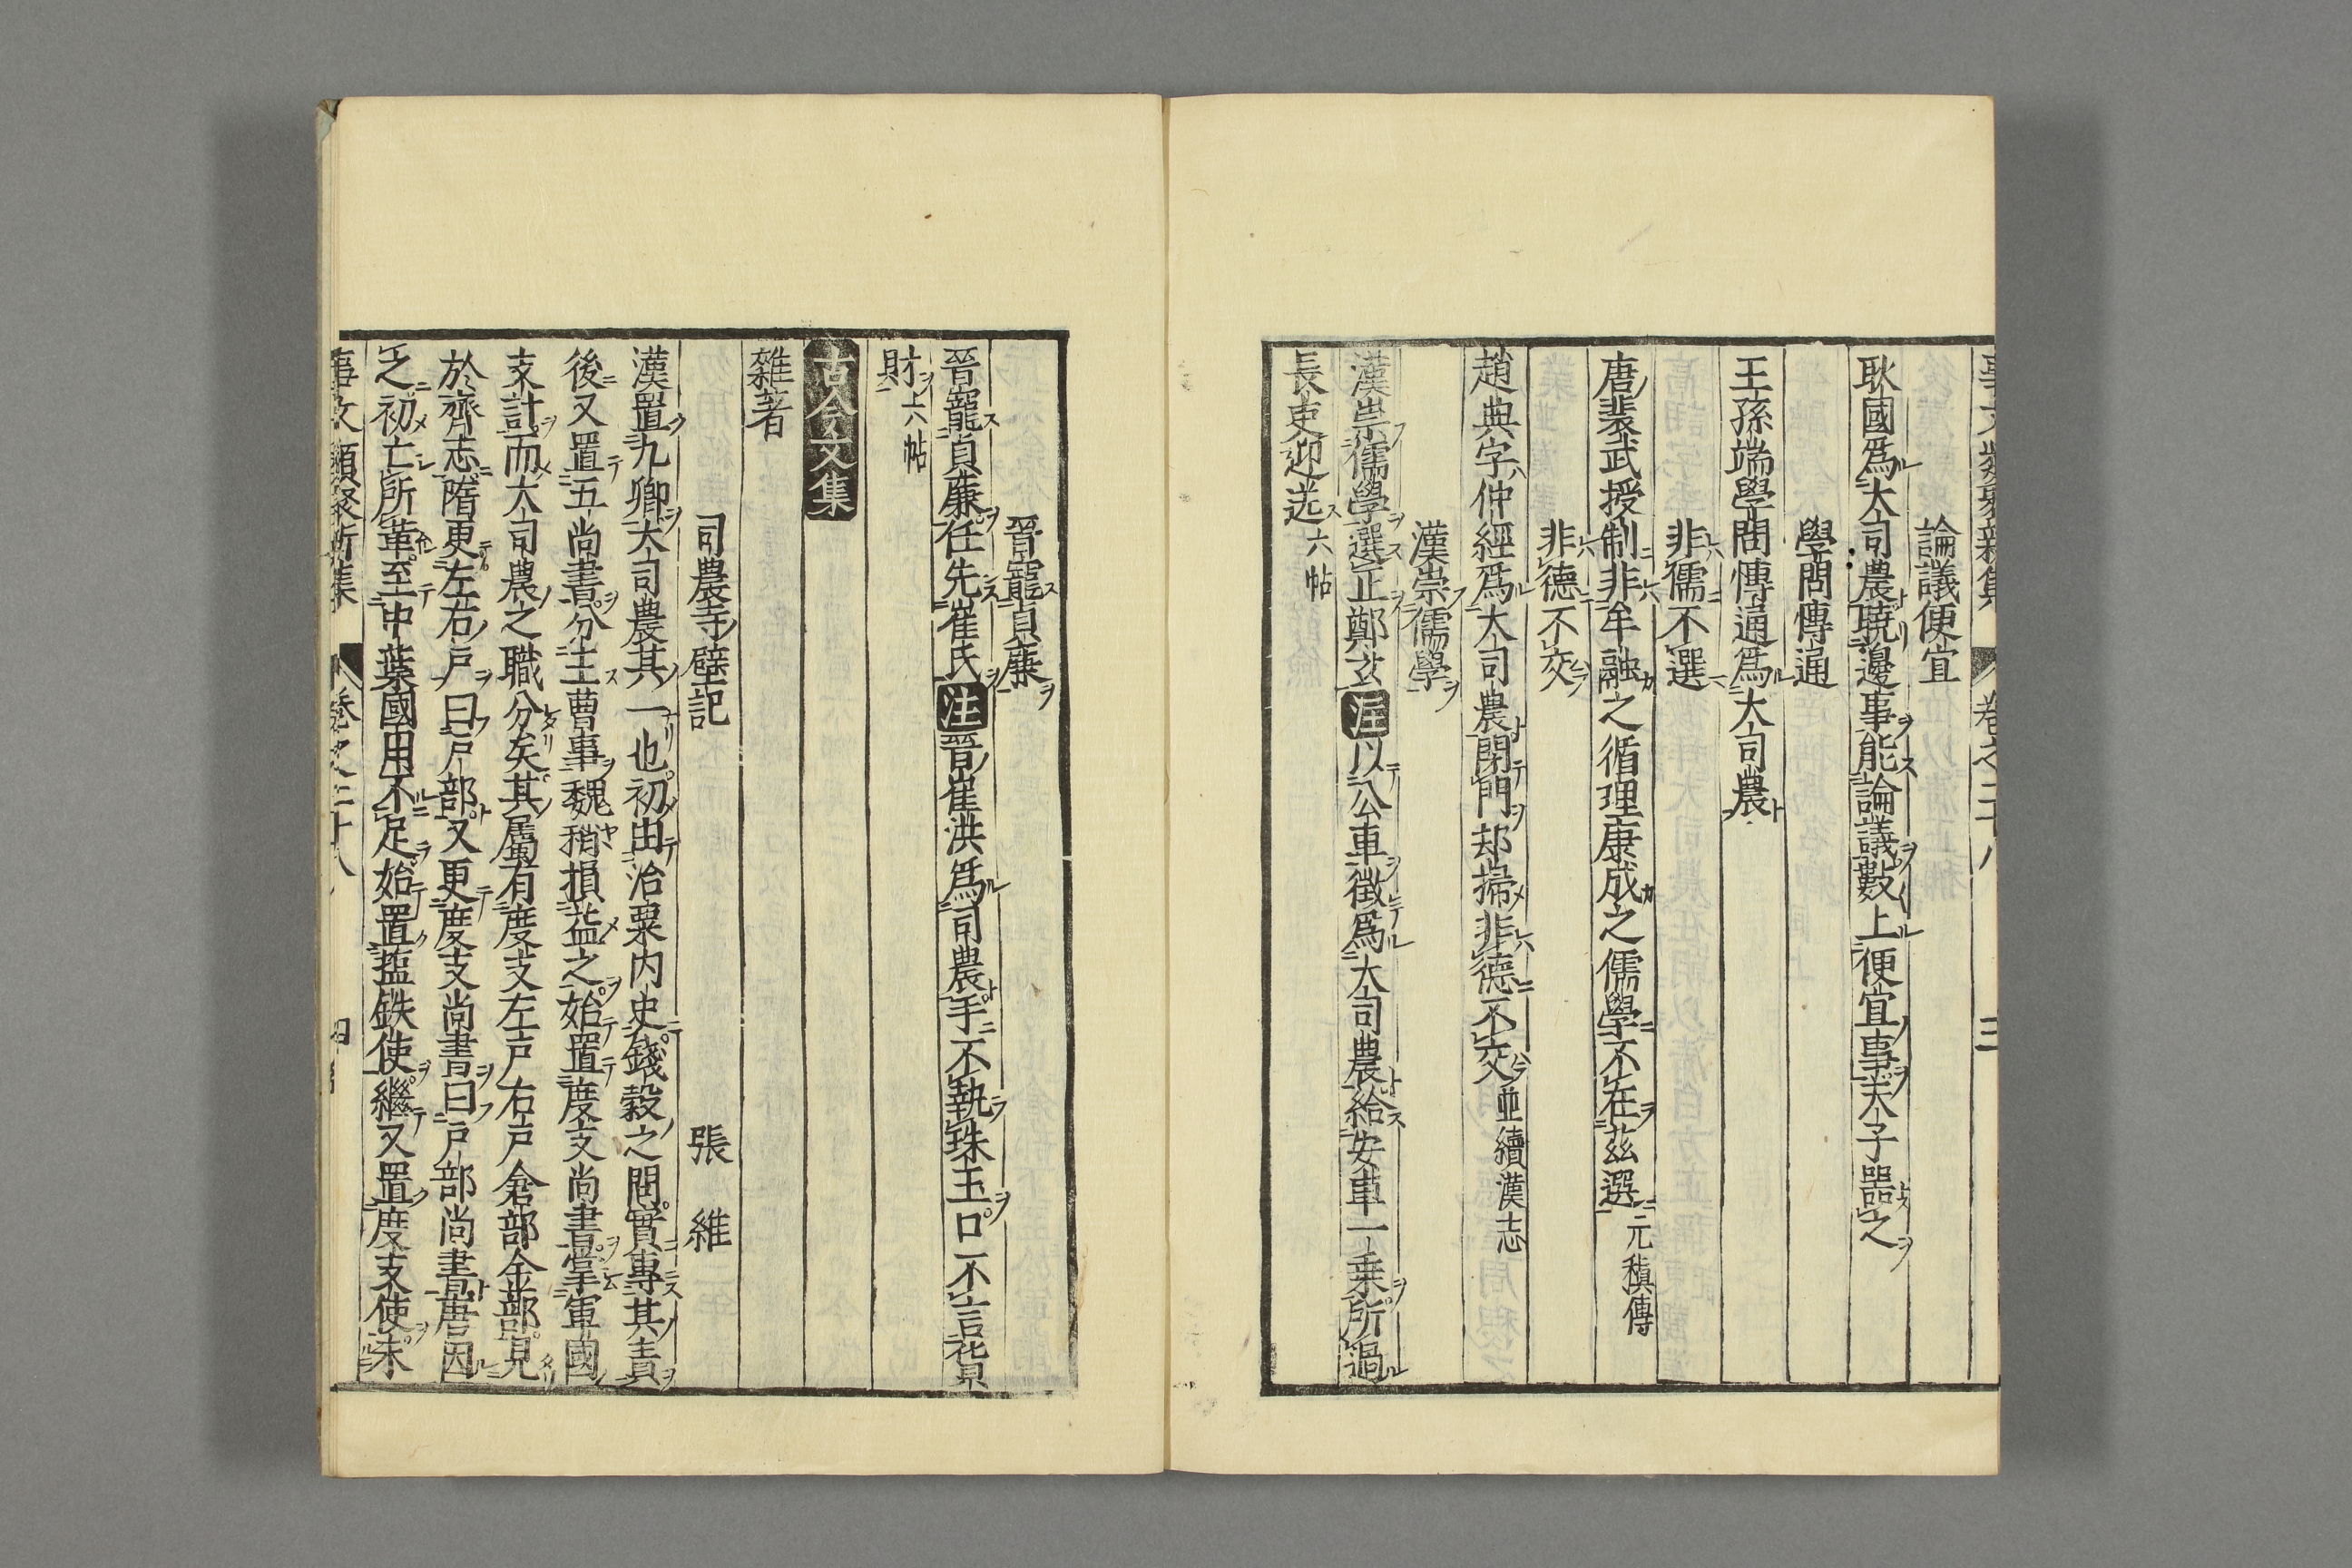 事文類聚新集 卷之二十八 三
論議便宜
耿國爲大司農曉邊事能論議數上便宜事天子器之
學問慱通
王孫端學問慱通爲大司農
非儒不選
唐裴武授制非牟融之循理康成之儒學不在茲選元稹傳
非德不交
趙典字仲經爲大司農閉門却掃非德不交並續漢志
漢崇儒學
漢崇儒學選正鄭玄注以公車徵爲大司農給安車一乗所過
長吏迎送六帖
晉寵貞廉
晉寵貞廉任先崔氏注晉崔洪爲司農手不執珠玉口不言貨
財六帖
古今文集
雜著
司農寺壁記 張維
漢置九卿大司農其一也初出治粟内史錢穀之問實專其責
後又置五尚書分主曹事魏稍損益之始置度支尚書掌軍國
支計而大司農之職分矣其屬有度支左戸右戸倉部金部見
於齊志隋更左右戸曰戸部又更度支尚書曰戸部尚書唐因
之初亡所革至中葉國用不足始置塩鉄使繼又置度支使未
事文類聚新集 卷之二十八 四